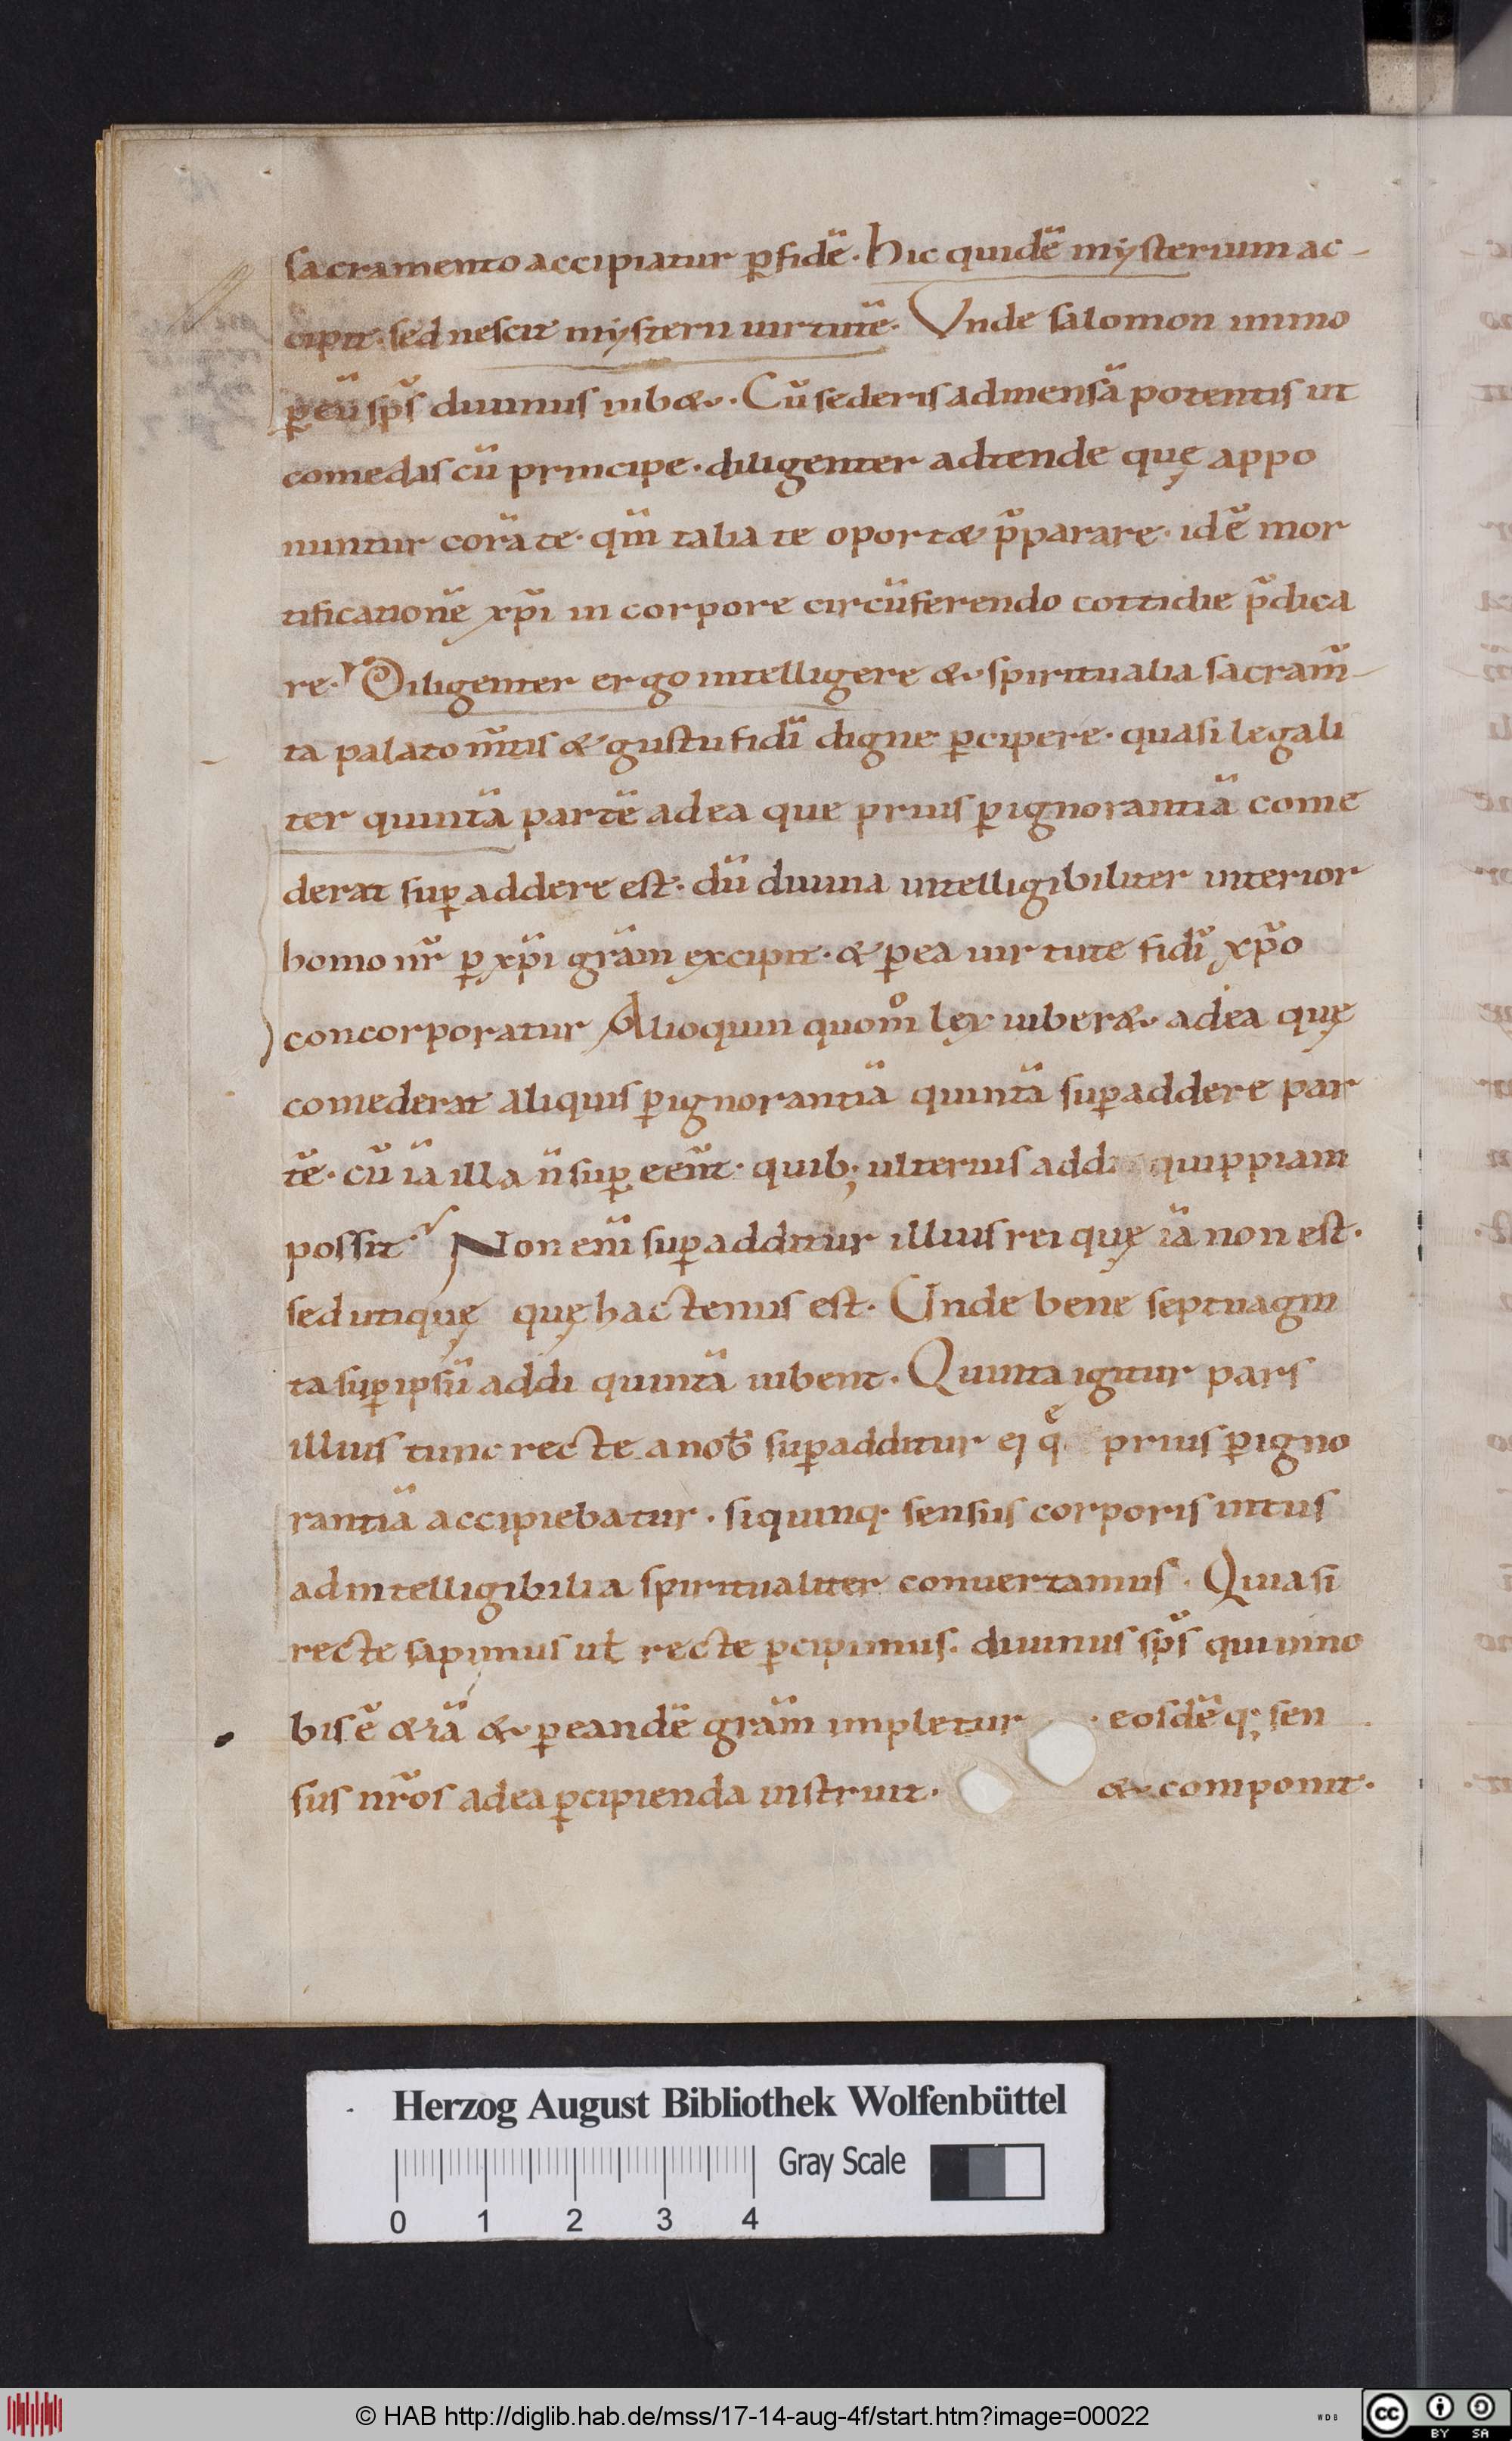 sacramento accipiatur ꝑ fidē. Hic quidē mysterium ac-
cipit. sed nescit mysterii uirtutē. Vnde salomon immo
ꝑ eū sp̄s diuinus iubet. Cū sederis ad mensā potentis ut
comedas cū principe. diligenter adtende quę appo
nuntur corā te. qm̄ talia te oportet p̄parare. idē mor
tificationē xp̄i in corpore circūferendo cottidie p̄dica
re. Diligenter ergo intelligere & spiritualia sacram̄
ta palato m̄tis & gustu fidi digne ꝑcipere. quasi legali
ter quintā partē ad ea que prius ꝑ ignorantiā come
derat suꝑaddere est. dū diuina intelligibiliter interior
homo nr̄ ꝑ xp̄i grām excipit. & ꝑ ea uirtute fidi xp̄o
concorporatur Alioquin quom̊ lex iuberet ad ea quę
comederat aliquis ꝑ ignorantiā quintā suꝑaddere par
tē. cū iā illa n̄ suꝑ eēnt. quib; ulterius addi quippiam
possit Non enī suꝑadditur illius rei quę iā non est.
sed utiquę quę hactenus est. Unde bene septuagin
ta suꝑ ipsū addi quintā iubent. Quinta igitur pars
illius tunc recte a nob̄ suꝑadditur ei q̊ prius ꝑ igno
rantiā accipiebatur. si quinq; sensus corporis intus
ad intelligibilia spiritualiter conuertamus. Quia si
recte sapimus ut recte ꝑcipimus. diuinus sp̄s qui in no
bis ē & iā & ꝑ eandē grām impletur. eosdēq; sen
sus nr̄os ad ea ꝑcipienda instruit. & componit.
Herzog August Bibliothek Wolfenbüttel
Gray Scale
0 1 2 3 4
© HAB http://diglib.hab.de/mss/17-14-aug-4f/start.htm?image=00022
WDB
cc BY SA